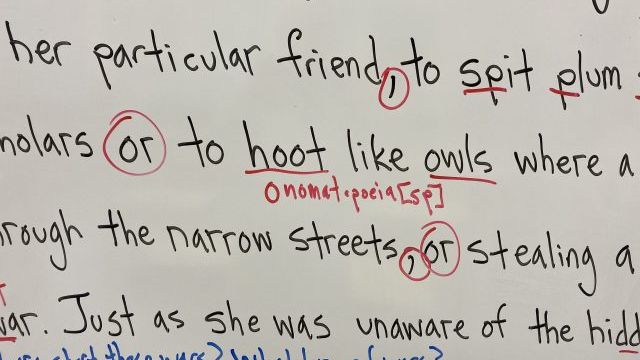 her particular friend, to spit plum
holars or to hoot like owls where a
onomatopoeia [sp]
rough the narrow streets, or stealing a
war. Just as she was unaware of the hidd